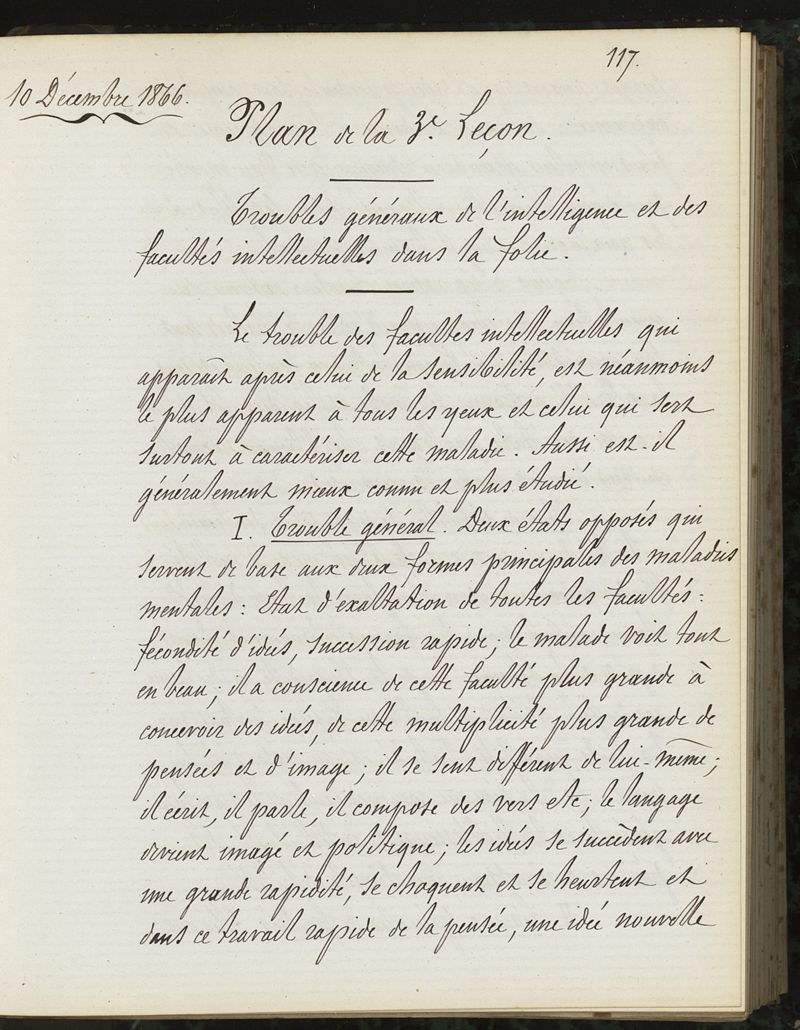 117.
10 Décembre 1866.
Plan de la 3e. Leçon.
Troubles généraux de l'intelligence et des
facultés intellectuelles dans la folie.
Le trouble des facultés intellectuelles qui
apparaît après celui de la sensibilité, est néanmoins
le plus apparent à tous les yeux et celui qui sert
surtout à caractériser cette maladie. Aussi est-il
généralement mieux connu et plus étudié.
I. Trouble général. Deux états opposés qui
servent de base aux deux formes principales des maladies
mentales: Etat d'exaltation de toutes les facultés:
fécondité d'idées, succession rapide; le malade voit tout
en beau; il a conscience de cette faculté plus grande à
concevoir des idées, de cette multiplicité plus grande de
pensées et d'image; il se sent différent de lui-même;
il écrit, il parle, il compose des vers etc; le langage
devient imagé et politique; les idées se succèdent avec
une grande rapidité, se choquent et se heurtent et
dans ce travail rapide de la pensée, une idée nouvelle